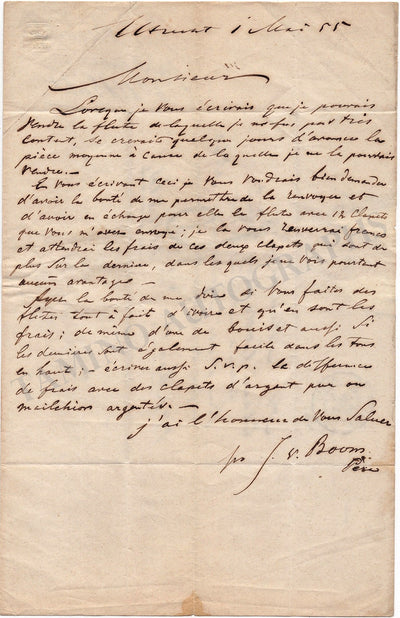 Utrecht 1 Mai 55
Monsieur
Lorsque je Vous écrivais que je pouvais
Vendre la flute de laquelle je ne fus pas très
Content, se crevait quelque jours d'avance la
pièce moyenne à cause de laquelle je ne la pouvais
Vendre.—
En Vous écrivant ceci je Vous voudrais bien demander
d'avoir la bonté de me permettre de la renvoyer et
d'avoir en échange pour elle la flute avec 12 Clapets
que Vous m'avez envoyé; je la vous renverrai franco
et attendrai les frais de ces deux clapets qui sont de
plus Sur la dernière, dans lesquels je ne Vois pourtant
aucun avantage.—
Ayez la bonté de me dire si Vous faites des
flutes tout à fait d'ivoire et qu'en sont les
frais; de même d'une de bouis et aussi Si
les derniers sont également facile dans les tons
en haut.— écrivez aussi S.v.p. la différence
de frais avec des clapets d'argent pur ou
mailchiors argentés.—
j'ai l'honneur de Vous Saluer
J. v. Boom
Père
TAMINO AUTOGRAPHS